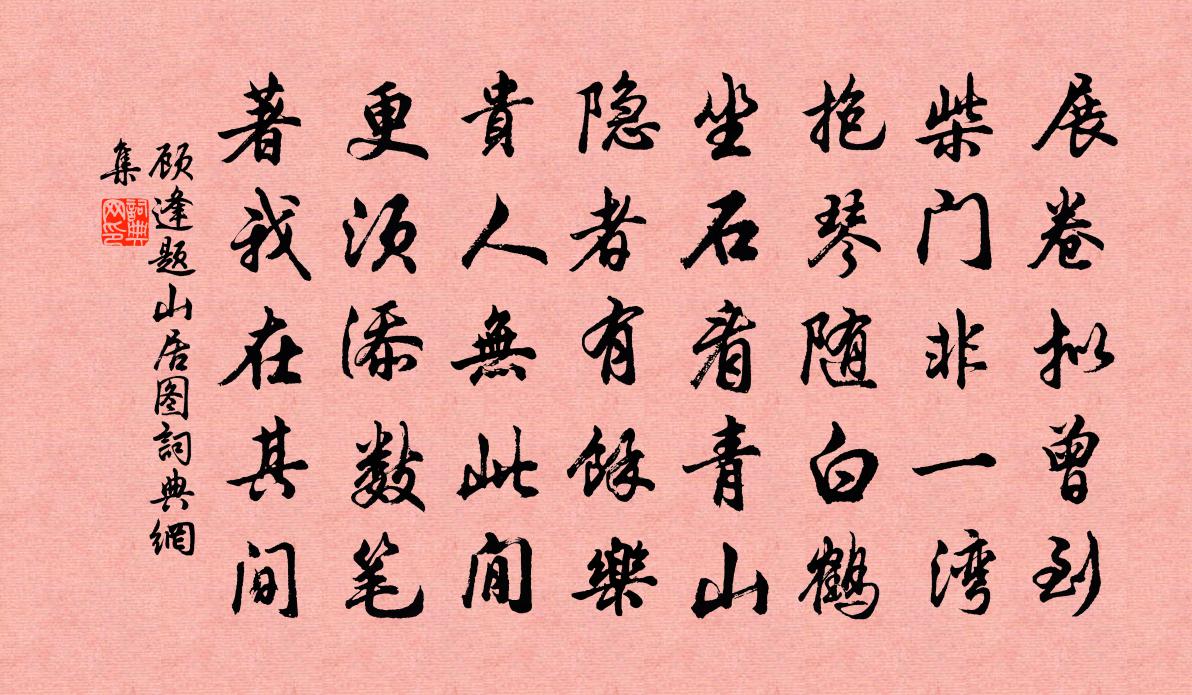 展卷拟曾到
柴门非一湾
抱琴随白鹤
坐石看青山
隐者有餘樂
貴人無此閒
更须添数笔
著我在其间
顾逢题山居图詞典網
集
詞典
网印